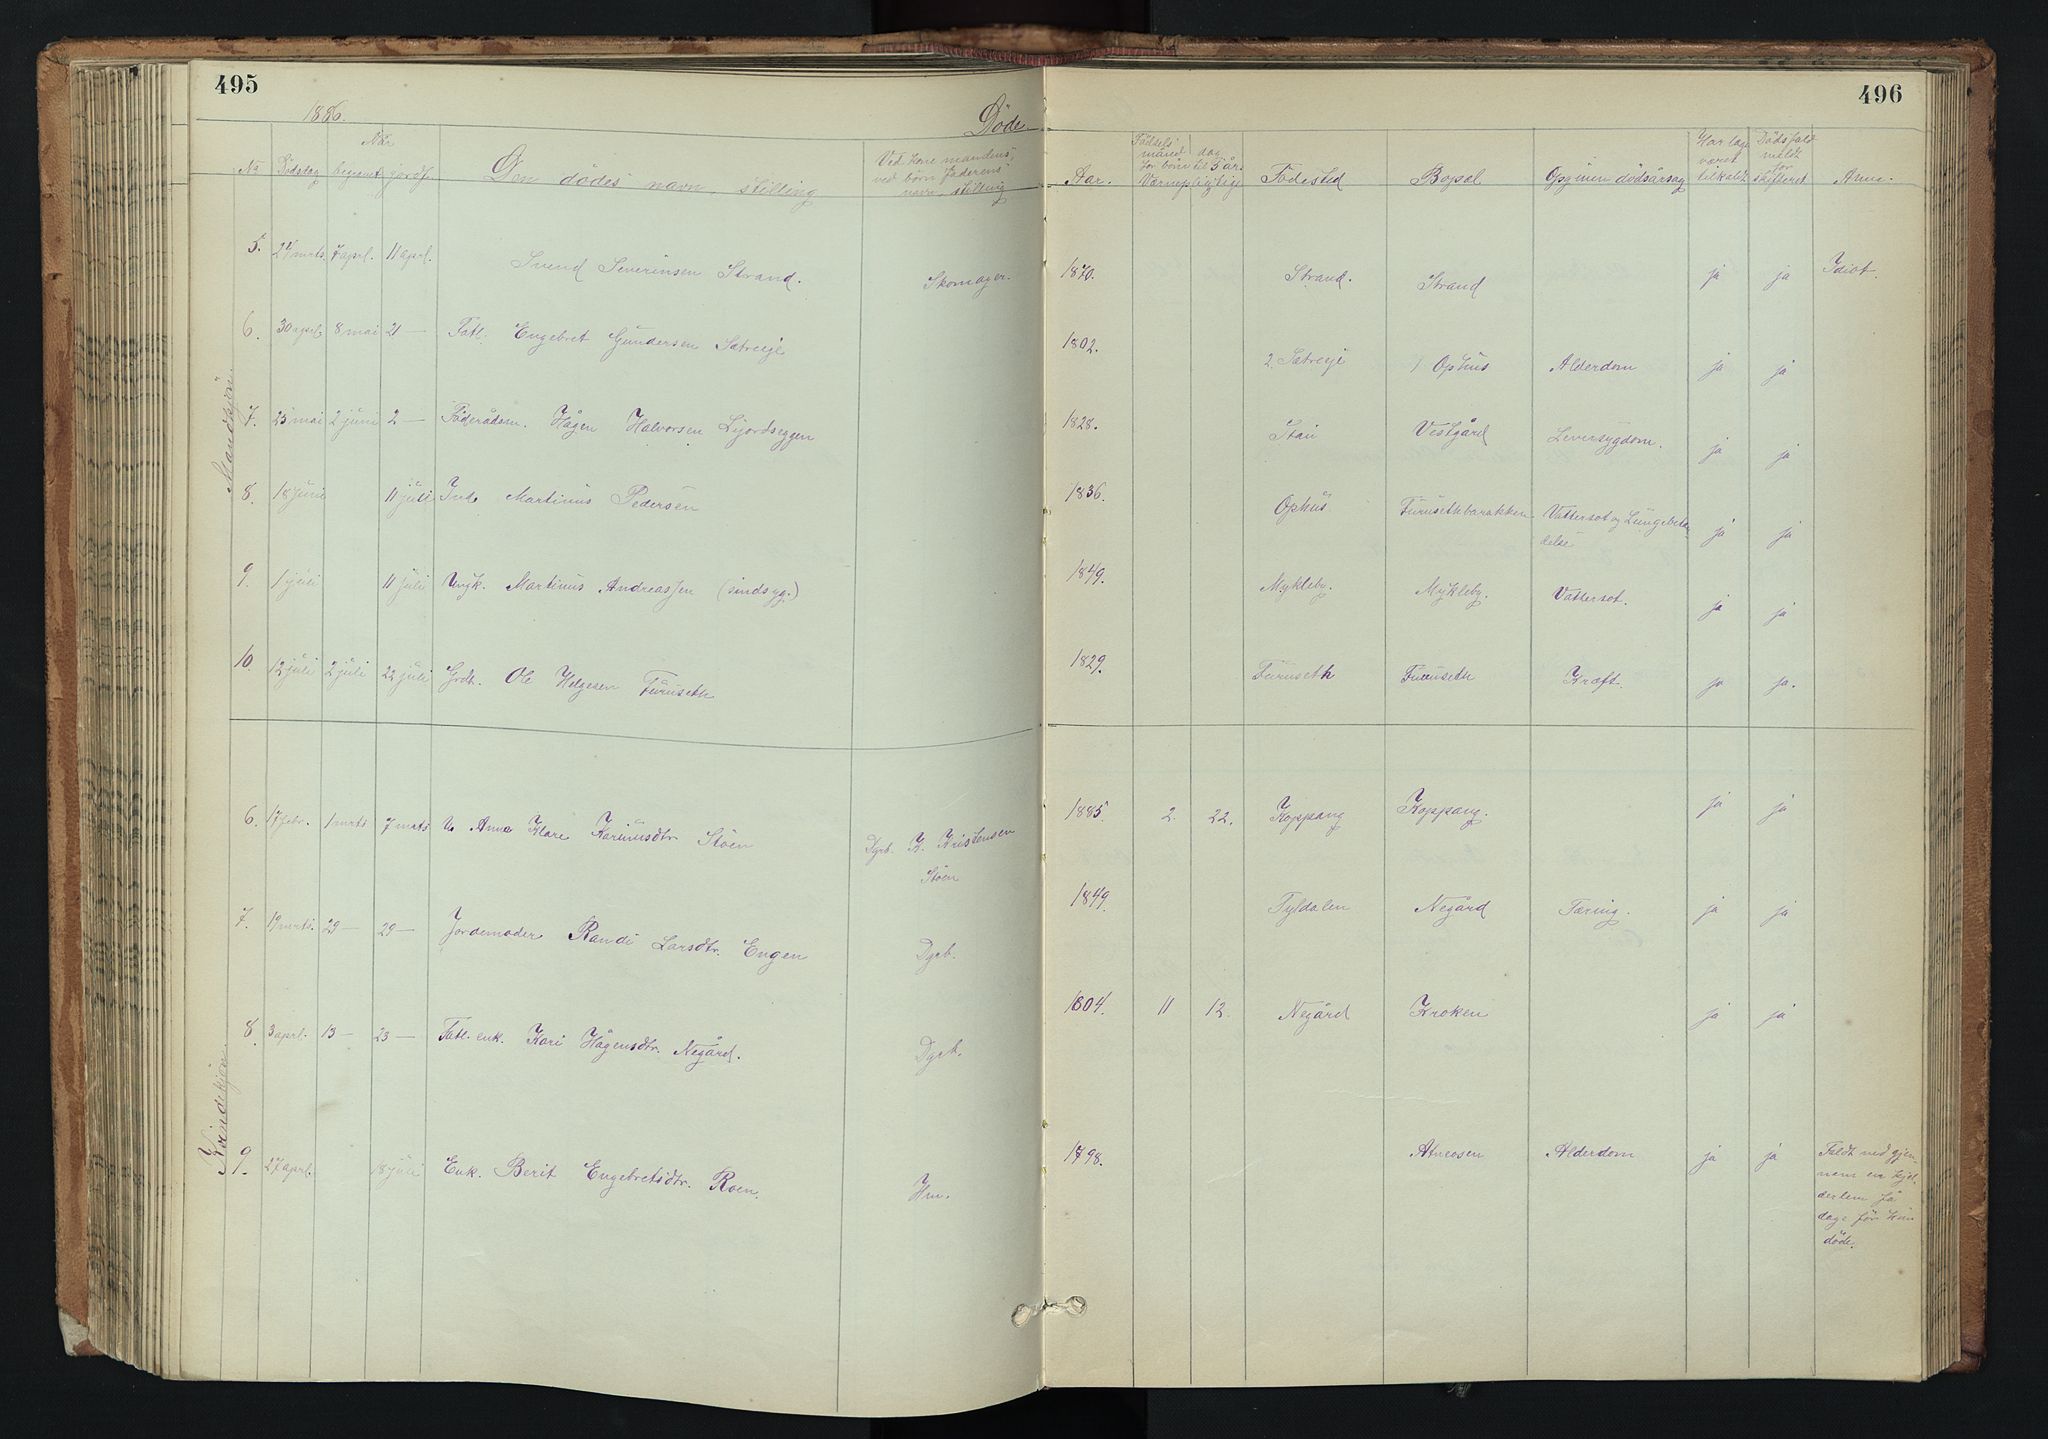 495
496
1886.
Døde.
No Dødsdag Når begravet jordf. Den dødes navn, stilling Ved kone mandens, ved børn faderens navn, stilling Aar. Fødsels måned dag for børn til 5 år. Værnepligtige Fødested Bopæl Opgiven dødsårsag Har læge været tilkaldt Dødsfald meldt for skifteret Anm.
Mandkjøn.
5. 27 mrts. 7 aprl. 11 aprl. Svend Severinsen Strand. Skomager. 1870. Strand. Strand ja ja Idiot.
6. 30 aprl. 8 mai 21 — Fatl. Engebret Gundersen Sætreeje 1802. 2. Sætreeje 1 Ophus Alderdom ja ja
7. 25 mai 2 juni 2 — Føderådsm. Hågen Halvorsen 1828. Stai Vestgård Leversygdom. ja ja
8. 18 juni 11 juli Ind. Martinus Pedersen 1836. Ophus Furusethbarakken Vattersot og Lungebetæn
delse ja ja
9. 1 juli 11 juli Ungk. Martinus Andreassen (sindsyg.) 1849. Mykleby. Mykleby. Vattersot. ja ja
10. 12 juli 2 juli 22 juli Grdb. Ole Helgesen Furuseth 1829. Furuseth Furuseth Kræft. ja ja.
Kvindekjøn.
6. 17 febr. 1 mrts 7 mrts U. Anne Klare Karinusdtr Støen Dgrb. K. Kristensen
Støen 1885 2. 22. Koppang Koppang. ja ja
7. 19 mrts. 29 — 29 — Jordemoder Randi Larsdtr. Engen Dgrb. 1849. Tyldalen Negård Tæring. ja ja
8. 3 aprl. 13 — 23 — Fatl. enk. Kari Hågensdtr. Negård. Dgrb. 1804. 11 12. Negård Kroken ja ja
9. 27 aprl. 18 juli Enk. Berit Engebretsdtr. Roen. Hm. 1798. Atneosen Alderdom ja ja Faldt ned gjen-
nem en kjel-
derlem få
dage før hun
døde.